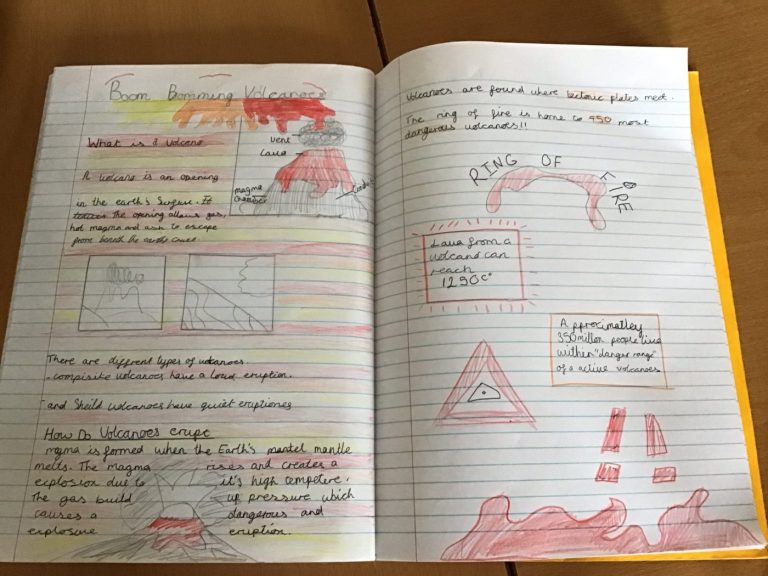 Boom Bomming Volcanoes
What is a Volcano
A Volcano is an opening
in the earth's surface. It
the opening allows gas,
hot magma and ash to escape
from beneath the earths
vent
Lava
magma
chamber
Conduit
There are different types of volcanoes.
-compisite volcanoes have a loud eruption.
-and Sheild volcanoes have quiet eruptiones
How Do Volcanoes erupt
magma is formed when the Earth's mantel mantle
melts. The magma rises and creates a
explosion due to it's high tempetere,
The gas build up pressure which
causes a dangerous and
explosive eruption.
Volcanoes are found where tectonic plates meet.
The ring of fire is home to 450 most
dangerous volcanoes!!
RING OF FIRE
Lava from a
volcano can
reach
1250c°
Approximatley
350 millon people live
within "danger range"
of a active volcanoes